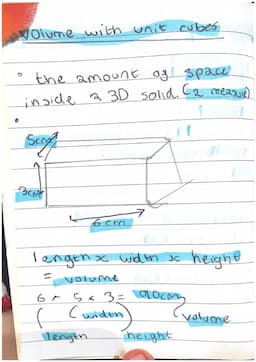 Volume with unit cubes
• the amount of space
inside a 3D solid. (2 measure)
•
5cm
3cm
6cm
length x width x height
= volume
6 x 5 x 3 = 90cm
(width) volume
length height